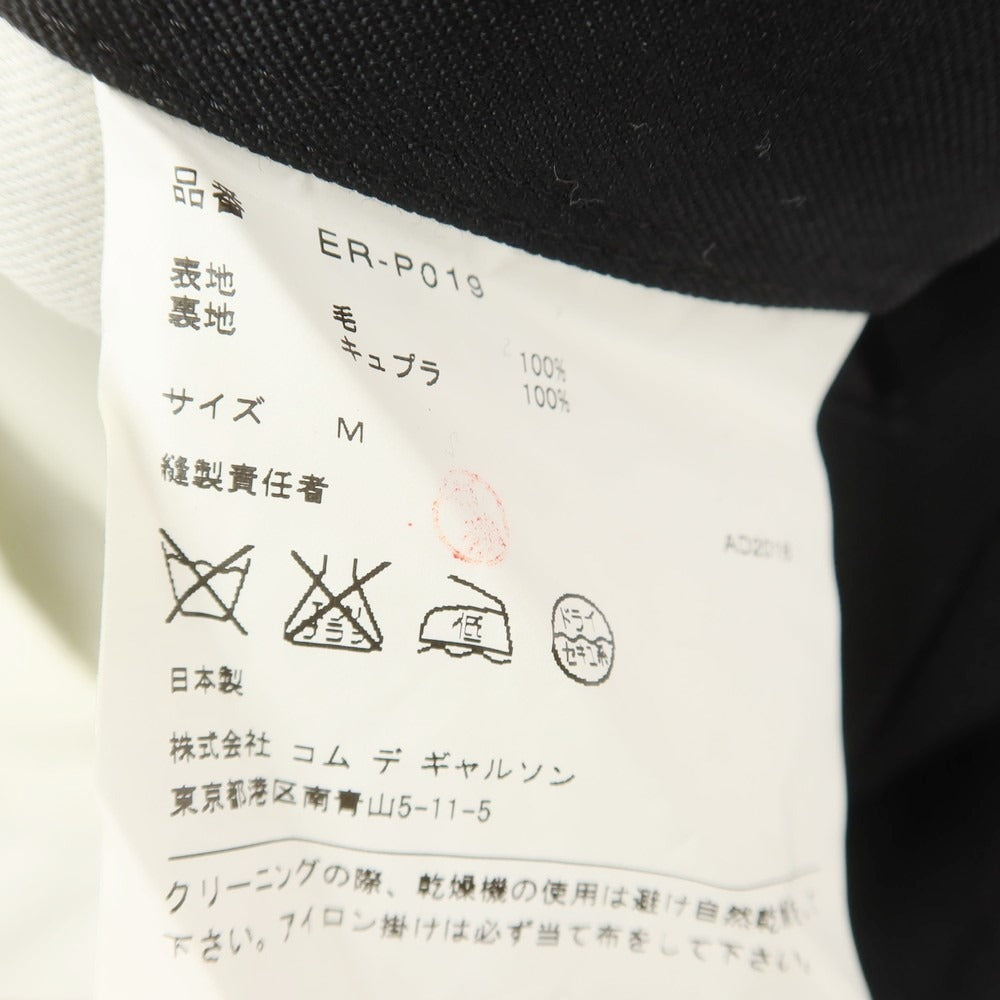 品番
ER-P019
表地 毛 100%
裏地 キュプラ 100%
サイズ M
縫製責任者
AD2016
エンソ フラン 低 ドライ セキユ系
日本製
株式会社 コム デ ギャルソン
東京都港区南青山5-11-5
クリーニングの際、乾燥機の使用は避け自然乾燥して
下さい。アイロン掛けは必ず当て布をして下さい。